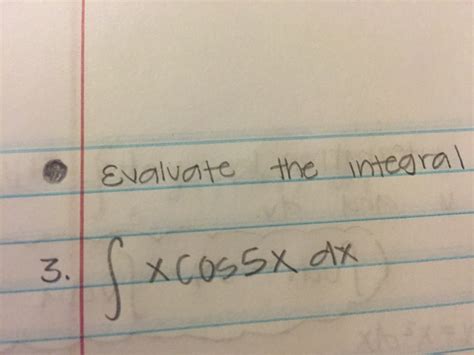 • Evaluate the integral
3. ∫ x cos5x dx